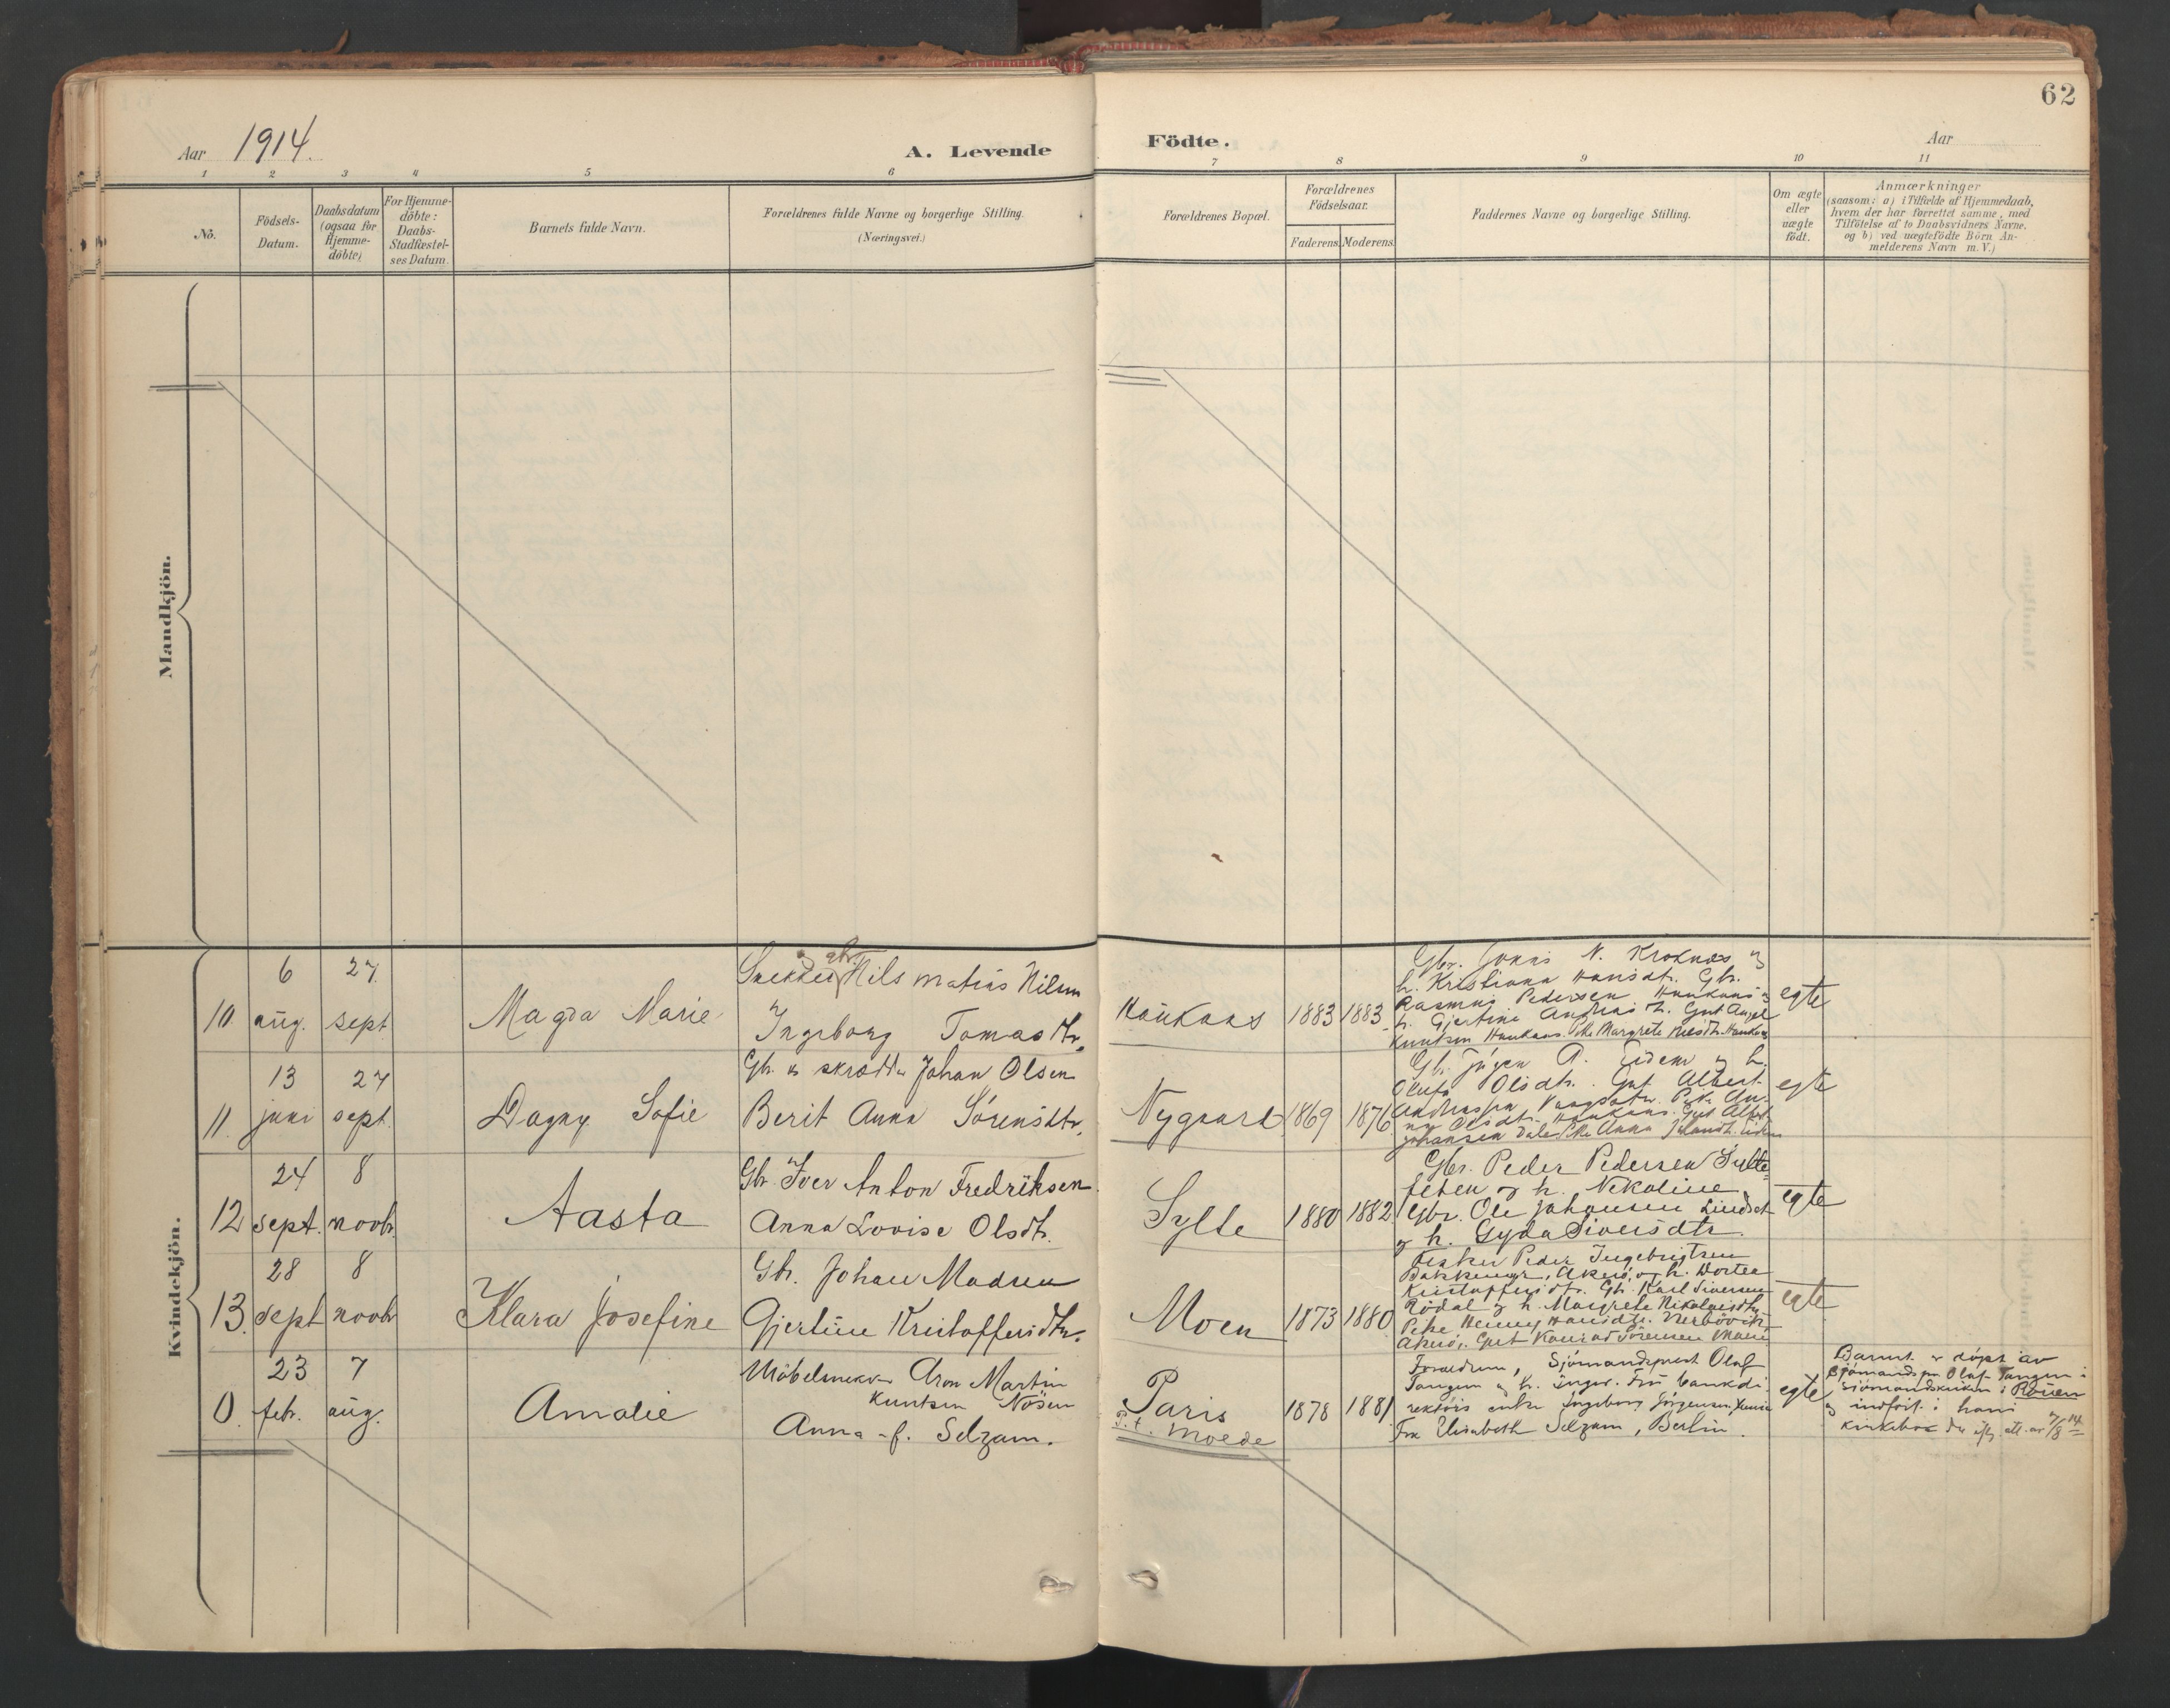 62
Aar 1914. A. Levende Födte. Aar
1 2 3 4 5 6 7 8 9 10 11
No.
Födsels-
Datum.
Daabsdatum
(ogsaa for
Hjemme-
döbte)
For Hjemme-
döbte:
Daabs-
Stadfæstel-
ses Datum.
Barnets fulde Navn.
Forældrenes fulde Navne og borgerlige Stilling.
(Næringsvei.)
Forældrenes Bopæl.
Forældrenes
Födselsaar.
Faderens. Moderens.
Faddernes Navne og borgerlige Stilling.
Om ægte
eller
uægte
födt.
Anmærkninger
(saasom: a) i Tilfælde af Hjemmedaab,
hvem der har forrettet samme, med
Tilföielse af to Daabsvidners Navne.
og b) ved uægtefödte Börn An-
melderens Navn m. V.)
Mandkjön.
Kvindekjön.
10. 6 aug. 27 sept
Magda Marie
Snekker og gbr. Nils Matias Nilsen
Ingeborg Tomasdtr.
Haukaas 1883 1883
Gbr. Jonas N. Kroknæs og
h. Kristianna Hansdtr. Gbr.
Rasmus Pedersen Haukaas og
h. Gjertine Andreas dt. Gut Augel
Knutsen Haukaas. Pike Margrete Nilsdtr. Haukaas
egte
11. 13 juni 27 sept.
Dagny Sofie
Gbr. og skrædder Johan Olsen
Berit Anna Sörensdtr.
Nygaard 1869 1876
Gbr. Jörgen A. Eidem og h.
Olufa Olsdtr. Gut Albert
Andreassen Pike An-
na Olsdtr. Haukaas. Gut Albert
Johansen Dale Pike Anna Johansdt. Eidem
egte
12 24 sept. 8 novbr.
Aasta
Gbr. Iver Anton Fredriksen
Anna Lovise Olsdtr.
Sylte 1880 1882
Gbr. Peder Pedersen Sylte-
og h. Nekoline
Gbr. Ole Johansen Lindset
og h. Gyda Siversdtr.
egte
13. 28 sept 8 novbr
Klara Josefine
Gbr. Johan Madsen
Gjertine Kristoffersdtr.
Moen 1873 1880
Fisker Peder Ingebrigtsen
Bakkemyr, Akerö, og h. Dortea
Kristoffersdtr. Gbr. Karl Siversen
Rödal og h. Margrete Nikolaisdtr.
Pike Henny Hansdtr. Nerbövik
Akerö. Gut Konrad Sörensen Moen
egte
0. 23 febr. 7 aug.
Amalie
Möbelsnekker Aron Martin
Knutsen Nösen
Anna f. Selzam.
Paris
P.t. Molde
1878 1881
Forældrene, Sjömandsprest Olaf
Tangen og h. Inger. Frü bankdi-
rektörs enke Ingeborg Jörgensen
Frk Elisabeth Selzam, Berlin.
egte
Barnet er döpt av
Sjömandspr. Olaf Tangen i
sjömandskirken i Rouen
og indfört i hans
kirkebok der efter att. av 7/8 14